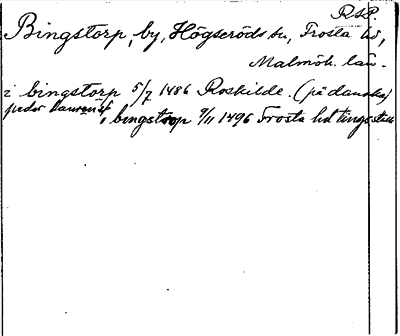 RSP.
Bingstorp, by, Högseröds sn, Frosta hd,
Malmöh. län.
i bingstorp 5/7 1486 Roskilde. (på danska)
peder i bingstorp 9/11 1496 Frosta hd tingsställe